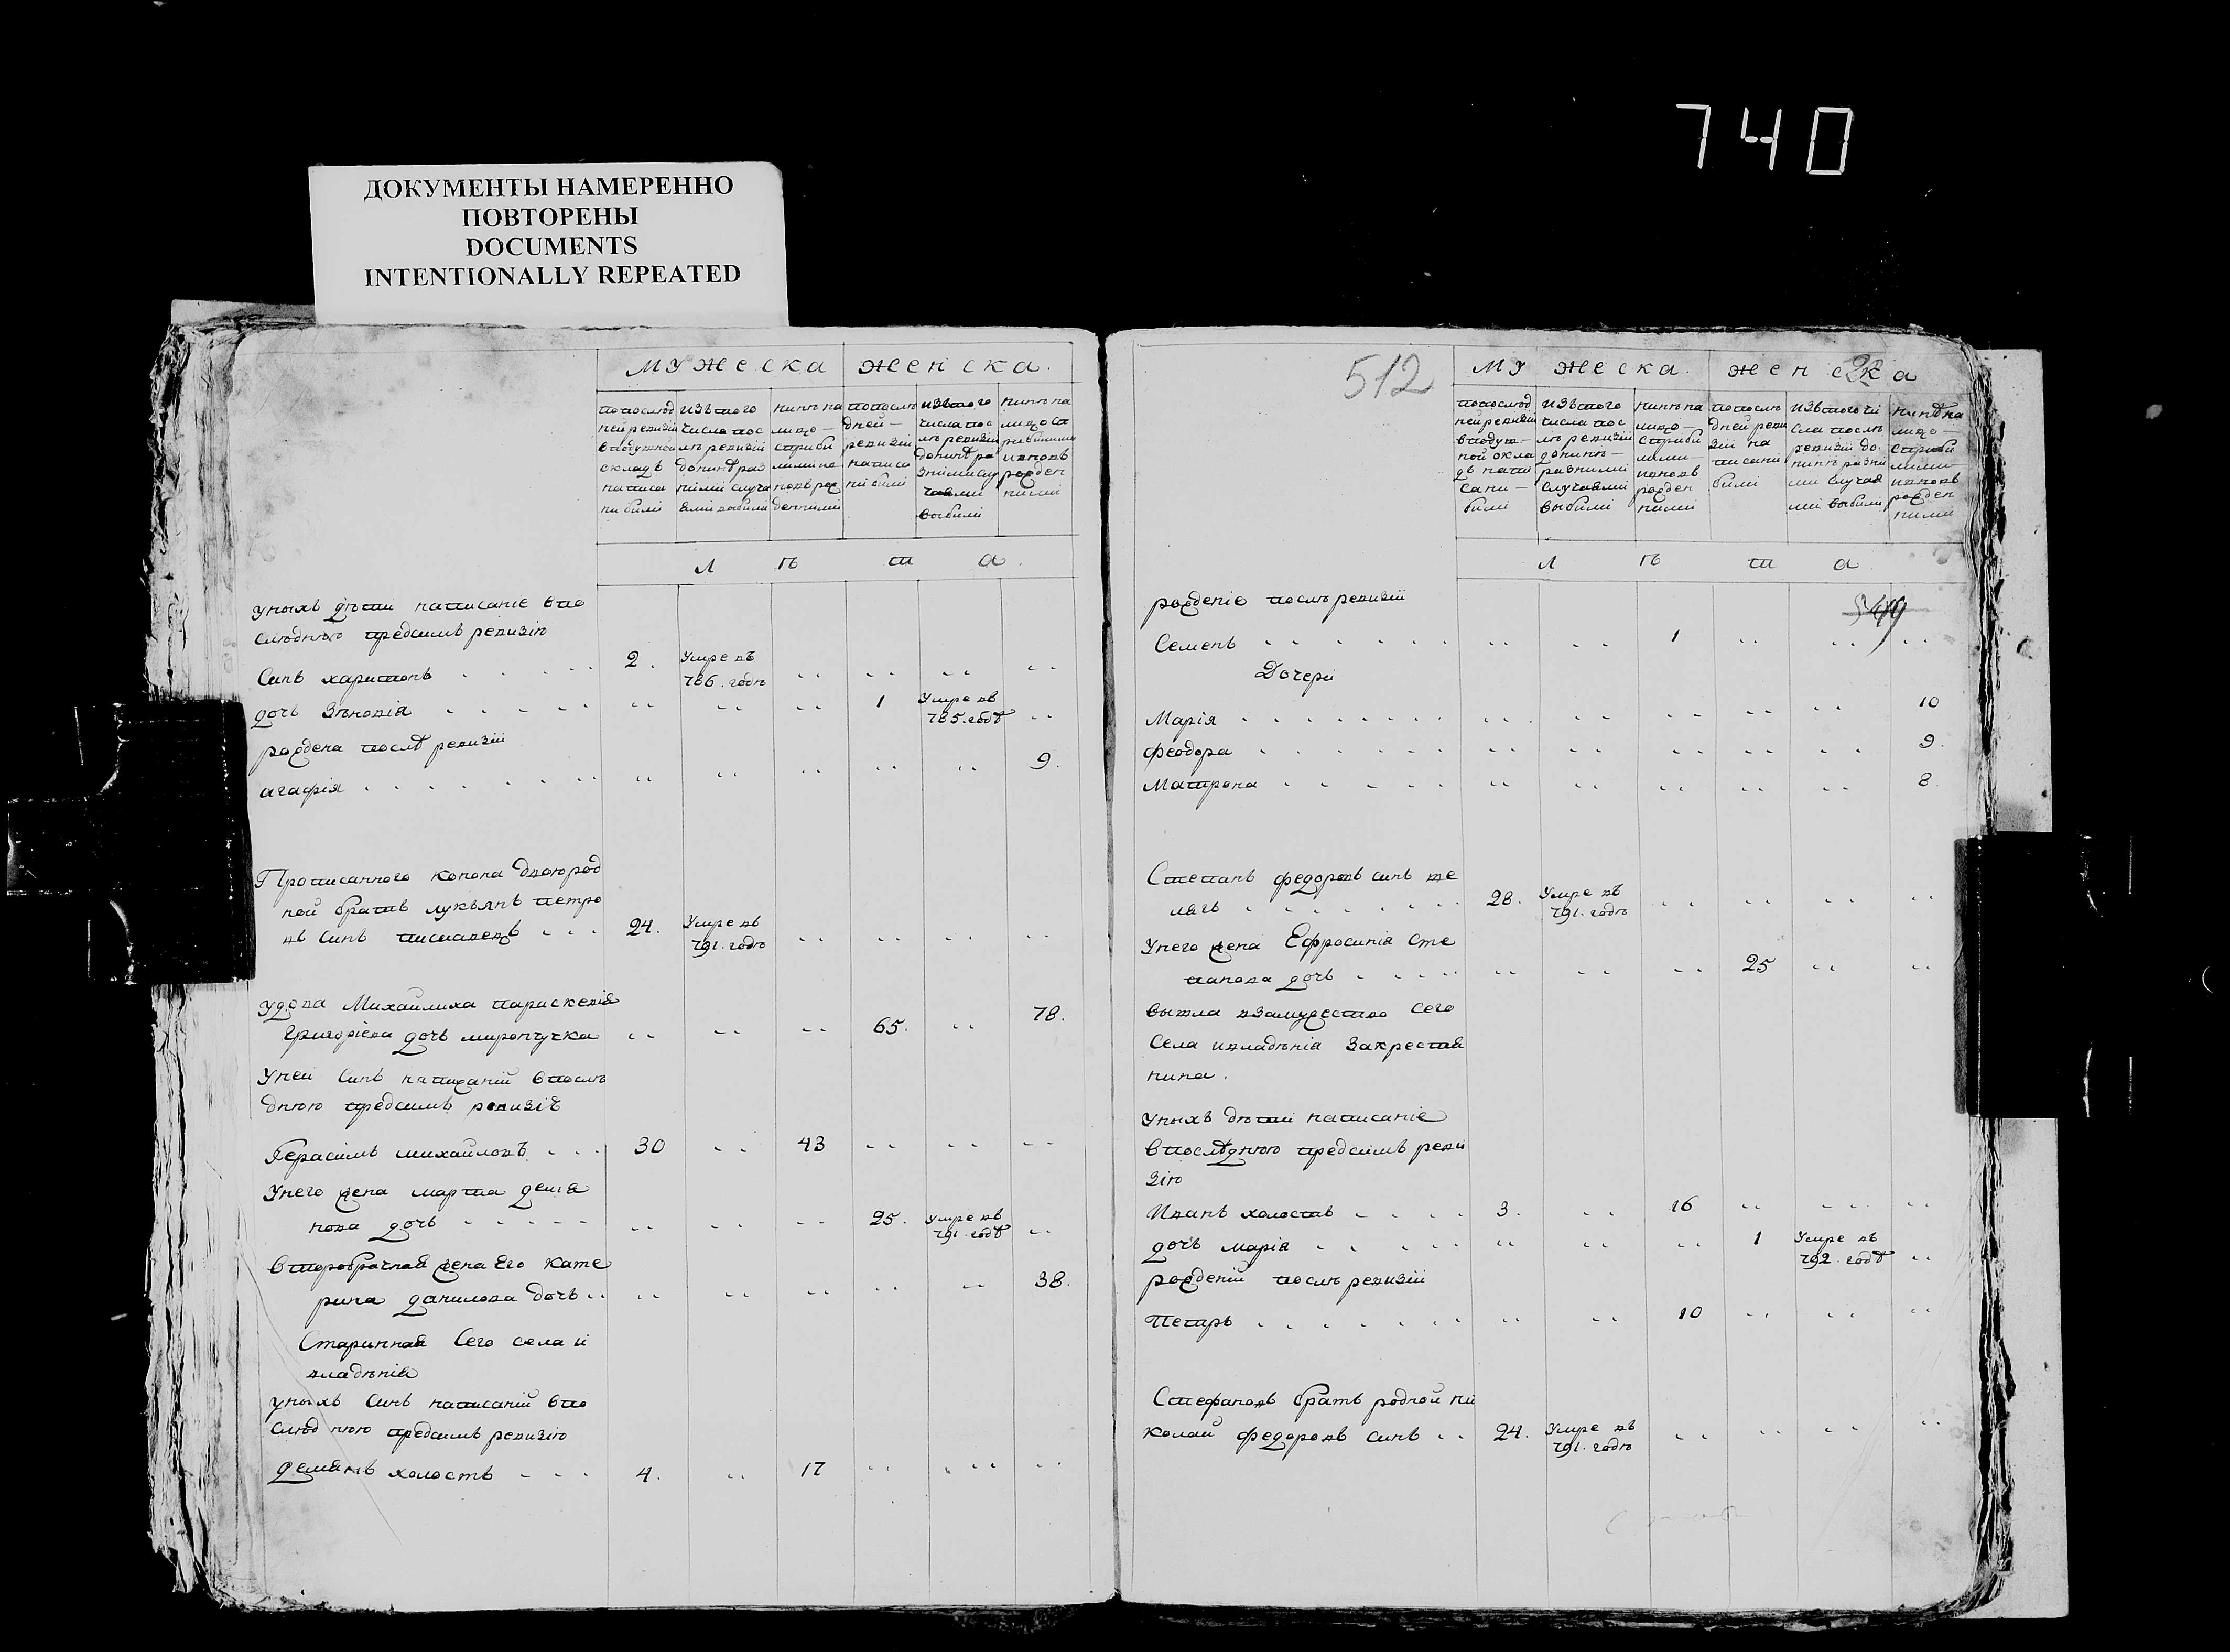 740
ДОКУМЕНТЫ НАМЕРЕННО
ПОВТОРЕНЫ
DOCUMENTS
INTENTIONALLY REPEATED
мужеска женска.
попослед ней ревизіи вподушном окладѣ написа ни были
изътого числа пос лѣ ревизіи донинѣ раз ними случа ями выбили
нинѣ на лицо — сприби лими по
попослѣ дней — ревизіи написа ни были
изътого числа пос лѣ ревизіи донинѣ ра зними слу чаями выбили
нинѣ на лицо са прибилими ивновъ рожден ними
л ѣ т а
унихъ дѣти написаніе впо
слѣднюю предсимъ ревизію
Синъ харитонъ 2. Умре въ 786. годѣ
дочь Зѣновія 1 Умре въ 785. годѣ
рождена послѣ ревизіи
агафія 9.
Прописанного конона двоюрод
ной братъ лукъянъ петро
въ синъ писмавецъ 24. Умре въ 791. годѣ
удова Михайлиха параскевія
григоріева дочь мирончучка 65. 78.
Уней Синъ написаній впослѣ
днюю предсимъ ревизіѣ
Герасимъ михайловъ 30 43
Унего жена марта демя
нова дочь 25. умре въ 791. годѣ
второбрачная жена Его кате
рина данилова дочь 38.
Старинная Сего села и
владѣнія
унихъ Синъ написаній впо
слѣд нюю предсимъ ревизію
демянъ холостъ 4. 17
512
му жеска. женска
попослѣд ней ревизіи вподуш— ной окла дъ напи сани— були
изътого числа пос лѣ ревизіи донинѣ— разними случаями выбили
нинѣ на лицо— сприби лими— ивновъ рожден ними
попослѣ дней реви зіи на писани били
изътого чи сла послѣ ревизіи до нинѣ разни ми случая ми выбили
нинѣ на лицо— сприби лими ивновъ рожден ними
л ѣ т а
рожденіе послѣ ревизіи
Семенъ 1
Дочери
Марія 10
феодора 9.
Матрона 8.
Степанъ федоровъ синъ те
лягъ 28. Умре въ 791. годѣ
Унего жена Ефросинія сте
панова дочь 25
вышла взамужество сего
Села ивладѣнія закрестья
нина.
унихъ дѣти написаніе
впослѣднюю предсимъ реви
зію
Иванъ холостъ 3. 16
дочь марія 1 Умре въ 792. годѣ
рожденій послѣ ревизіи
Петръ 10
Стефановъ братъ родной ни
колай федоровъ синъ 24. Умре въ 791. годѣ